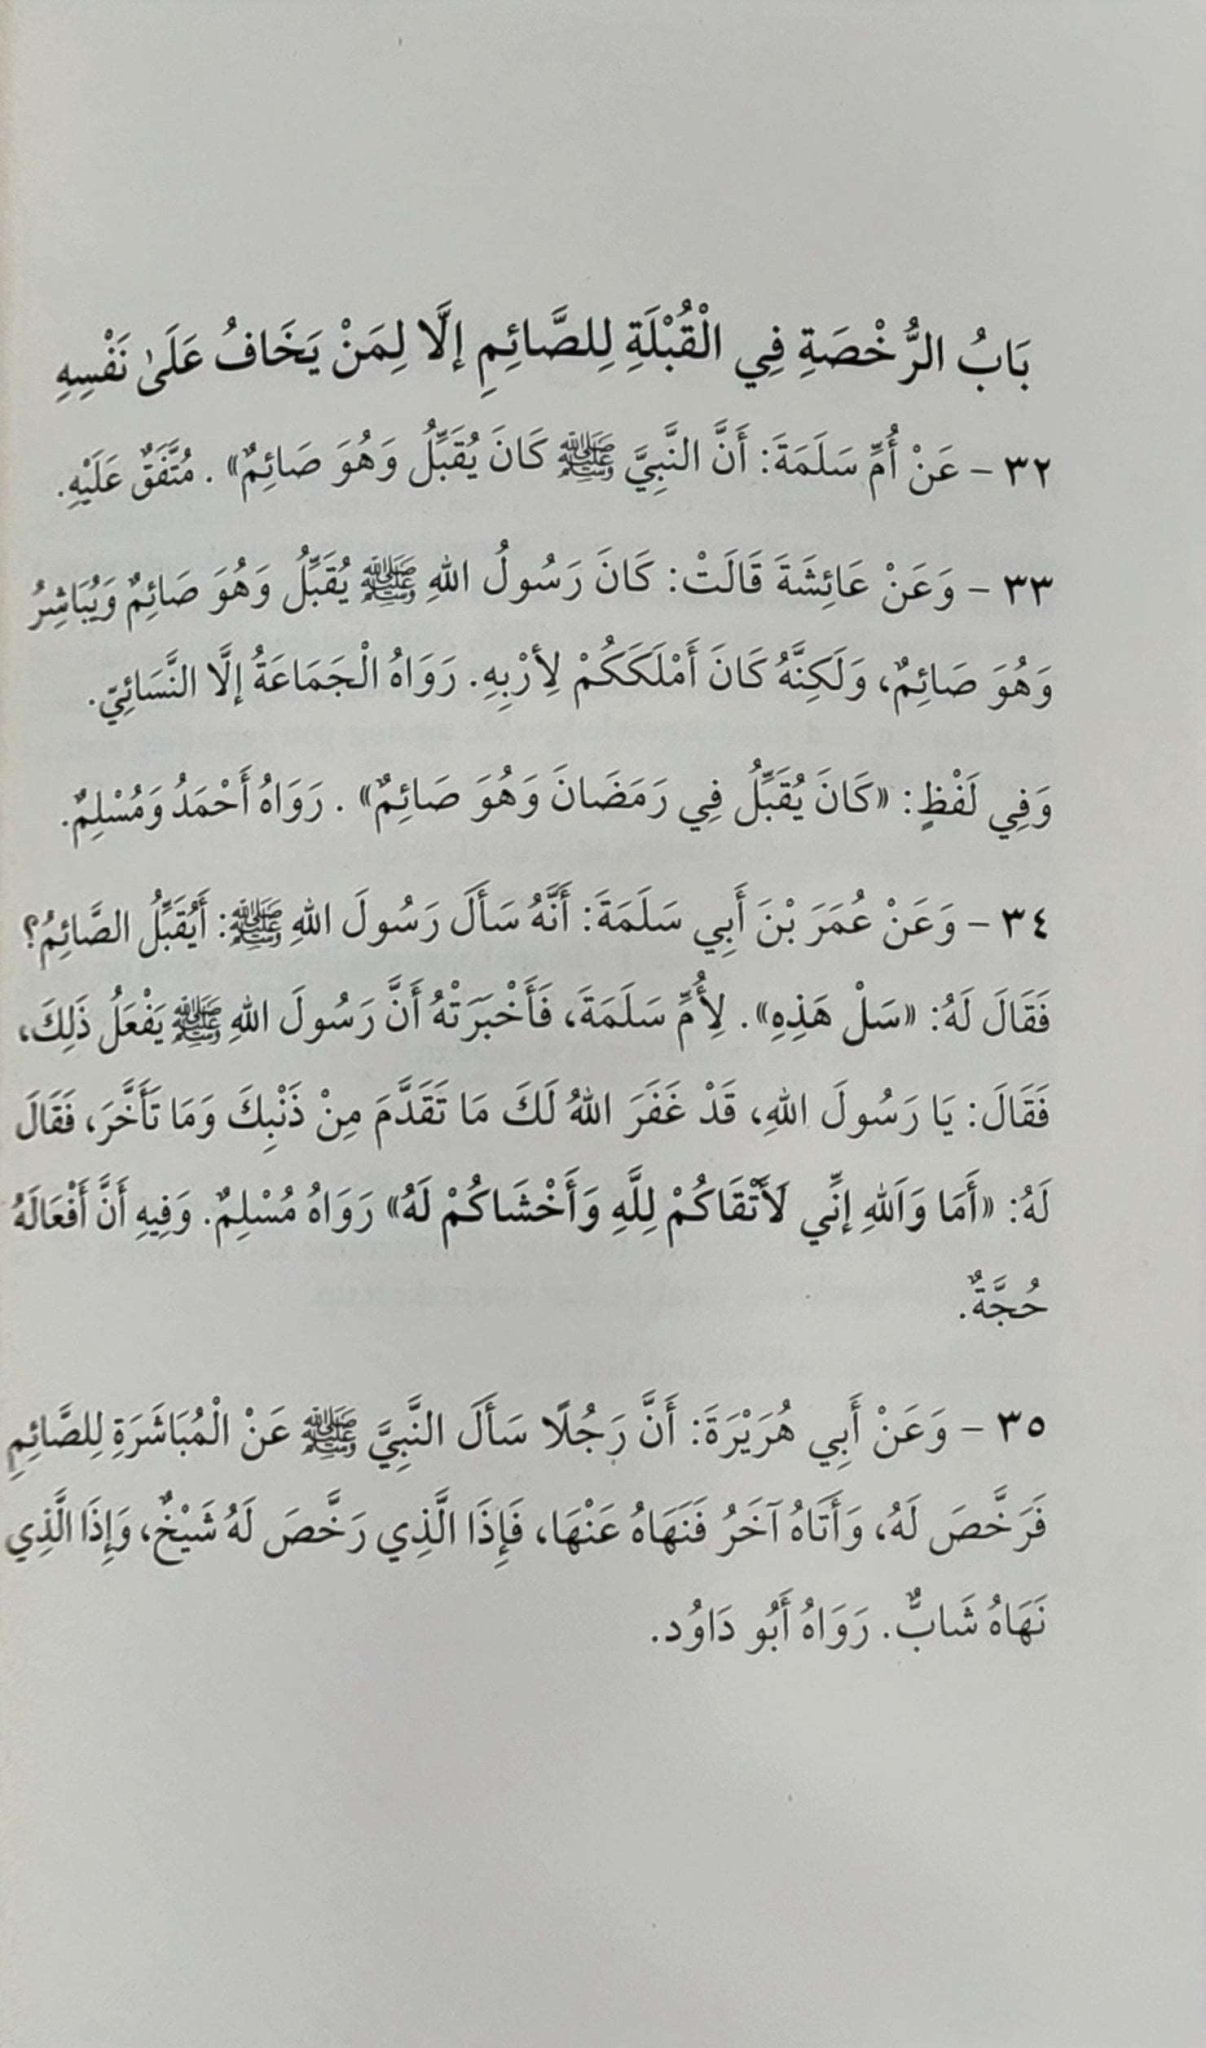 بَابُ الرُّخْصَةِ فِي الْقُبْلَةِ لِلصَّائِمِ إلَّا لِمَنْ يَخَافُ عَلَىٰ نَفْسِهِ
٣٢ - عَنْ أُمِّ سَلَمَةَ: أَنَّ النَّبِيَّ ﷺ كَانَ يُقَبِّلُ وَهُوَ صَائِمٌ» . مُتَّفَقٌ عَلَيْهِ.
٣٣ - وَعَنْ عَائِشَةَ قَالَتْ: كَانَ رَسُولُ اللهِ ﷺ يُقَبِّلُ وَهُوَ صَائِمٌ وَيُبَاشِرُ
وَهُوَ صَائِمٌ، وَلَكِنَّهُ كَانَ أَمْلَكَكُمْ لِأَرْبِهِ. رَوَاهُ الْجَمَاعَةُ إلَّا النَّسَائِيّ.
وَفِي لَفْظٍ: «كَانَ يُقَبِّلُ فِي رَمَضَانَ وَهُوَ صَائِمٌ» . رَوَاهُ أَحْمَدُ وَمُسْلِمٌ.
٣٤ - وَعَنْ عُمَرَ بْنَ أَبِي سَلَمَةَ: أَنَّهُ سَأَلَ رَسُولَ اللهِ ﷺ: أَيُقَبِّلُ الصَّائِمُ؟
فَقَالَ لَهُ: «سَلْ هَذِهِ». لِأُمِّ سَلَمَةَ، فَأَخْبَرَتْهُ أَنَّ رَسُولَ اللهِ ﷺ يَفْعَلُ ذَلِكَ،
فَقَالَ: يَا رَسُولَ اللهِ، قَدْ غَفَرَ اللهُ لَكَ مَا تَقَدَّمَ مِنْ ذَنْبِكَ وَمَا تَأَخَّرَ، فَقَالَ
لَهُ: «أَمَا وَاَللهِ إنِّي لَأَتْقَاكُمْ لِلَّهِ وَأَخْشَاكُمْ لَهُ» رَوَاهُ مُسْلِمٌ. وَفِيهِ أَنَّ أَفْعَالَهُ
حُجَّةٌ.
٣٥ - وَعَنْ أَبِي هُرَيْرَةَ: أَنَّ رَجُلًا سَأَلَ النَّبِيَّ ﷺ عَنْ الْمُبَاشَرَةِ لِلصَّائِمِ
فَرَخَّصَ لَهُ، وَأَتَاهُ آخَرُ فَنَهَاهُ عَنْهَا، فَإِذَا الَّذِي رَخَّصَ لَهُ شَيْخٌ، وَإِذَا الَّذِي
نَهَاهُ شَابٌّ. رَوَاهُ أَبُو دَاوُد.